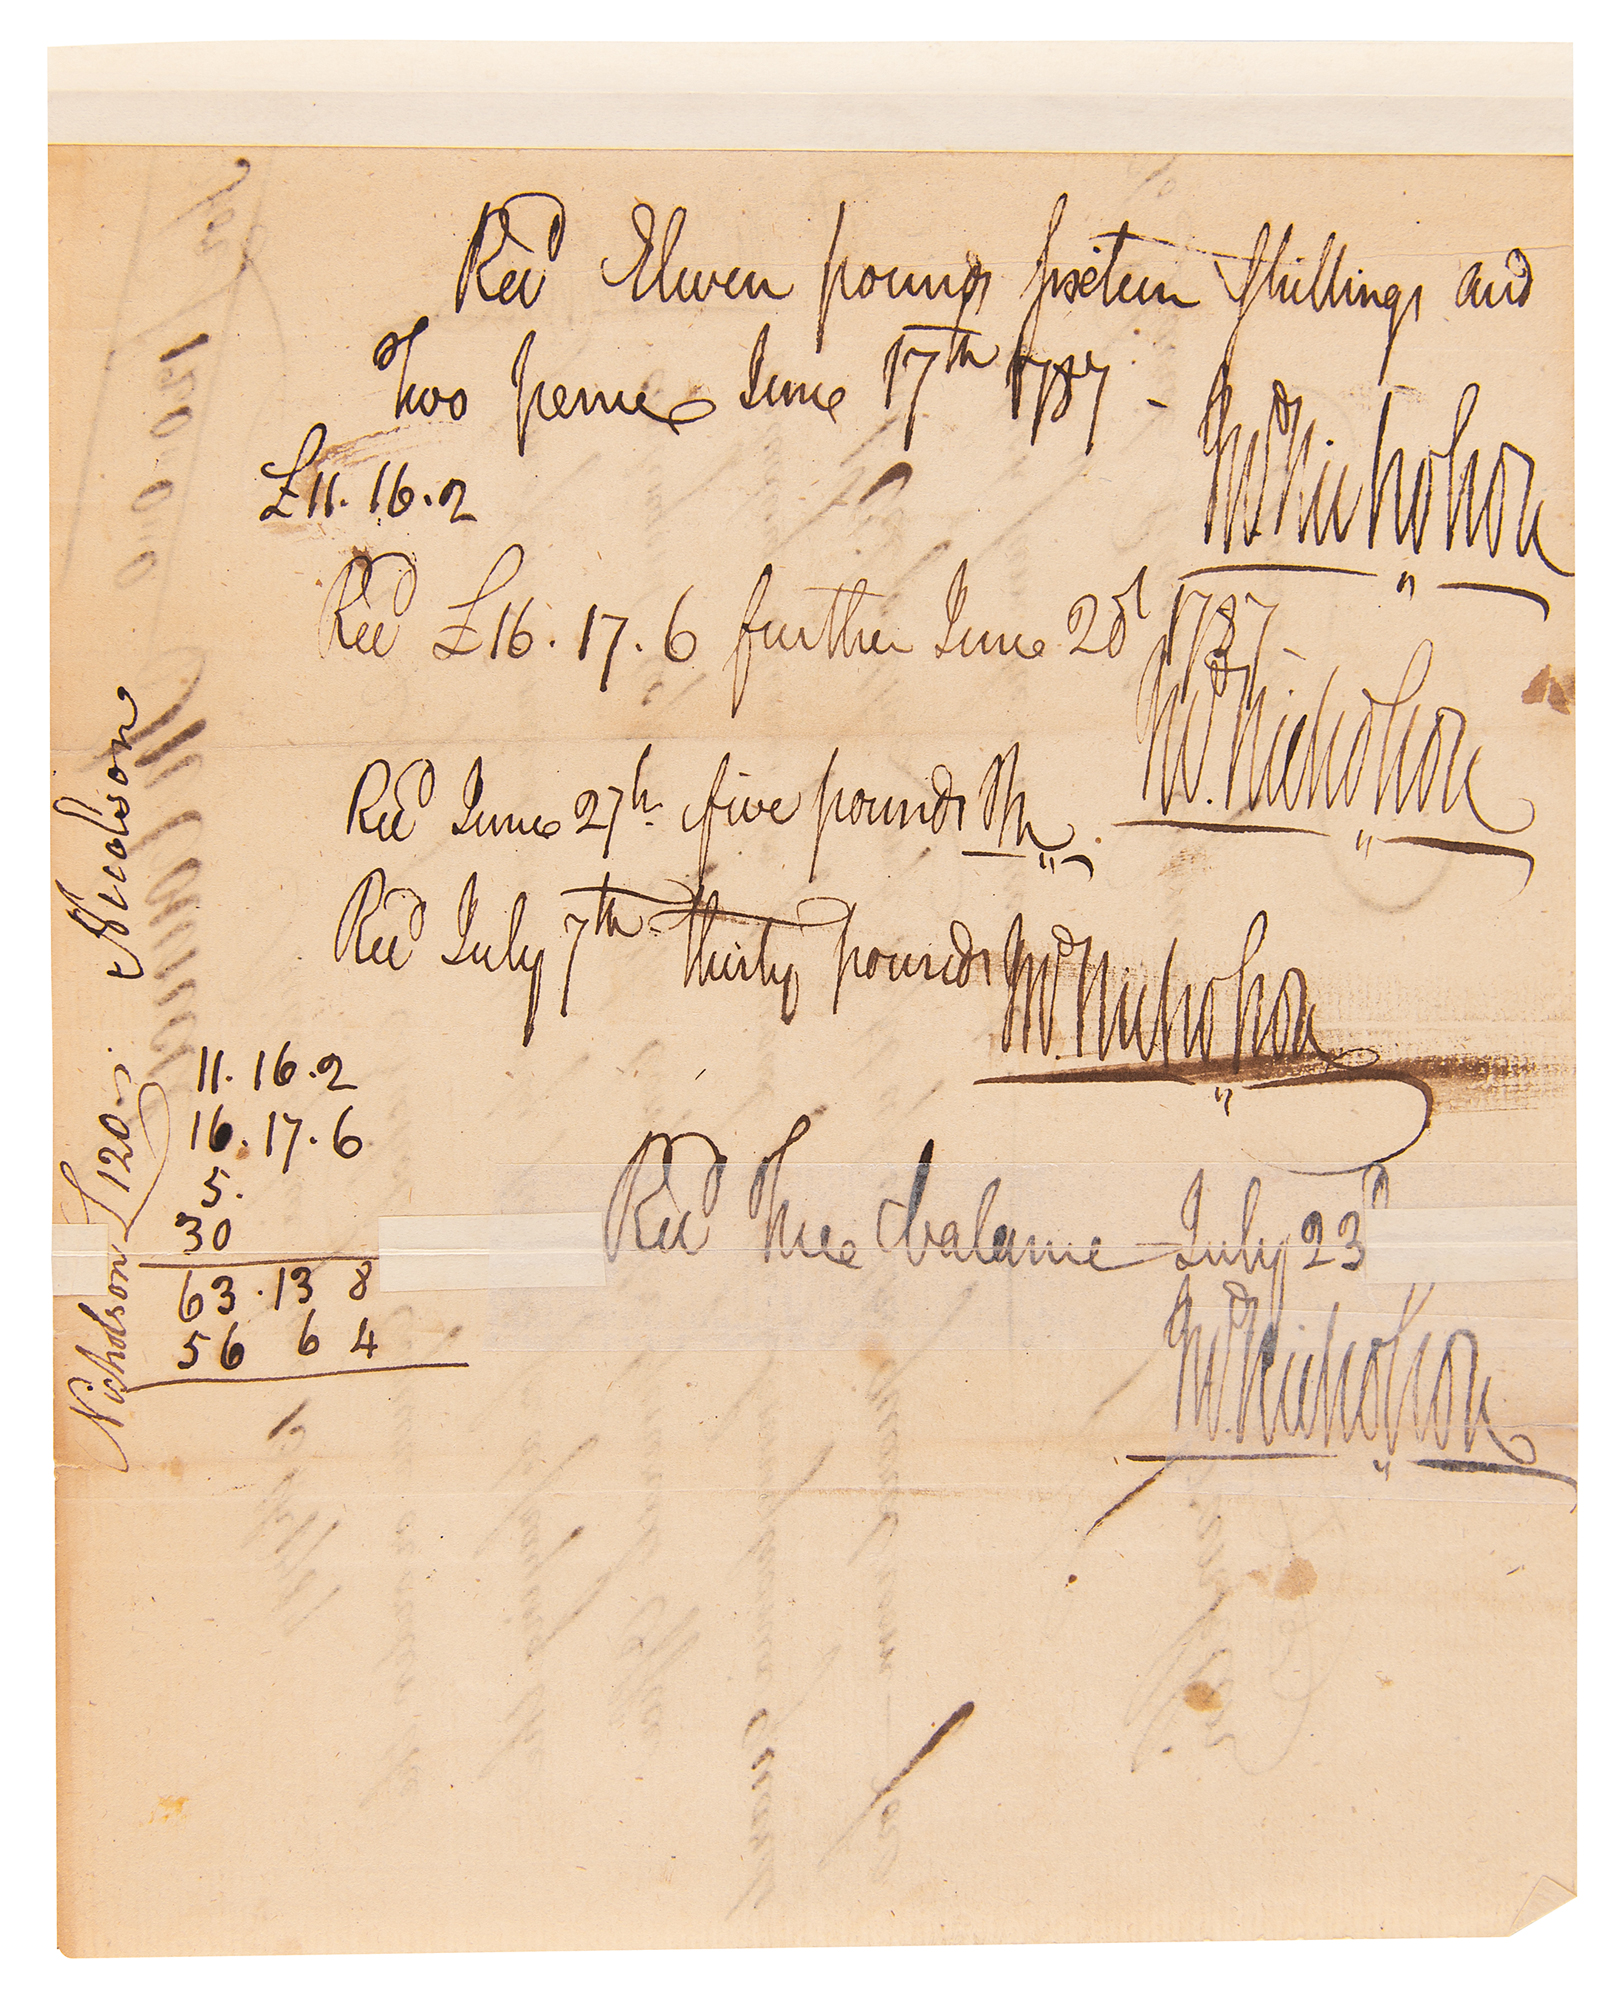 Recd Eleven pounds sixteen Shillings and
Two pence June 17th 1787 -
£11.16.2
Wm. Nicholson
Recd £16.17.6 further June 2d 1787 -
Wm. Nicholson
Recd June 27th. five pounds Wn
Recd July 7th thirty pounds Wm. Nicholson
Recd The balance July 23d
Wm. Nicholson
11.16.2
16.17.6
5.
30
63.13 8
56 6 4
Nicholson £120
Nicolson